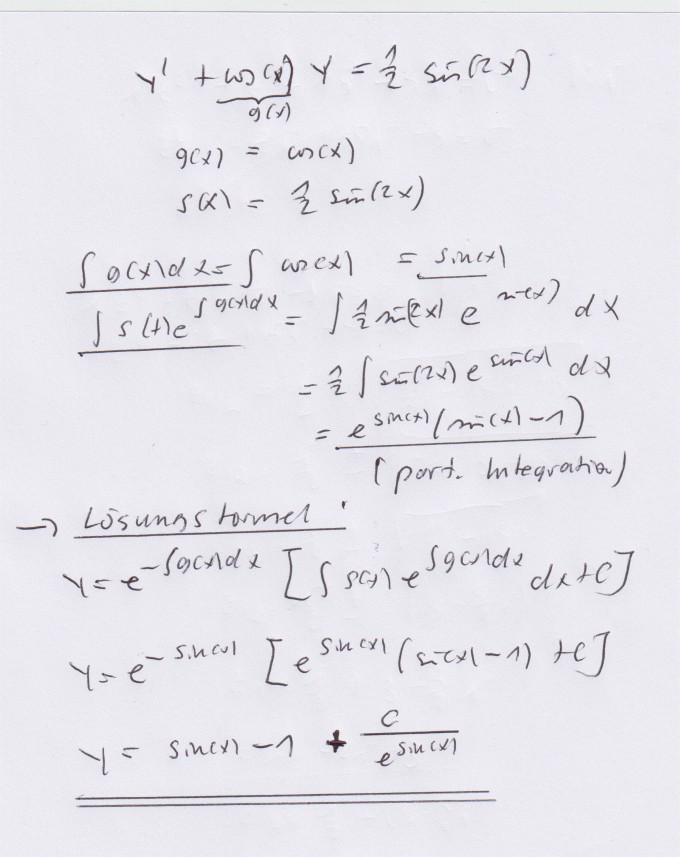 y' + cos(x) y = 1/2 sin(2x)
g(x)
g(x) = cos(x)
s(x) = 1/2 sin(2x)
∫ g(x)dx = ∫ cos(x) = sin(x)
∫ s(x) e^∫g(x)dx = ∫ 1/2 sin(2x) e^sin(x) dx
= 1/2 ∫ sin(2x) e^sin(x) dx
= e^sin(x) (sin(x) - 1)
(part. Integration)
→ Lösungsformel:
y = e^-∫g(x)dx [∫ s(x) e^∫g(x)dx dx + C]
y = e^-sin(x) [e^sin(x) (sin(x) - 1) + C]
y = sin(x) - 1 + C / e^sin(x)